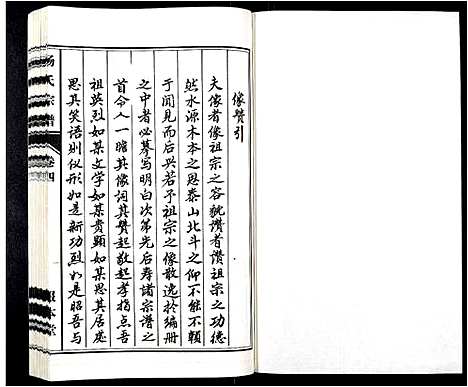 像贊引
夫像者像祖宗之容貌讚者讚祖宗之功德
然水源木本之思泰山北斗之仰不能不賴
于聞見而后兴若于祖宗之像敢迭於編册
之中者必摹写明白次第先后寿諸宗谱之
首令人一瞻其像词其賛起敬起孝指点吾
祖英烈如某文学如某贵顕如某思其居處
思其笑语則仪形如是新功烈如是昭吾与
楊氏宗譜
卷四